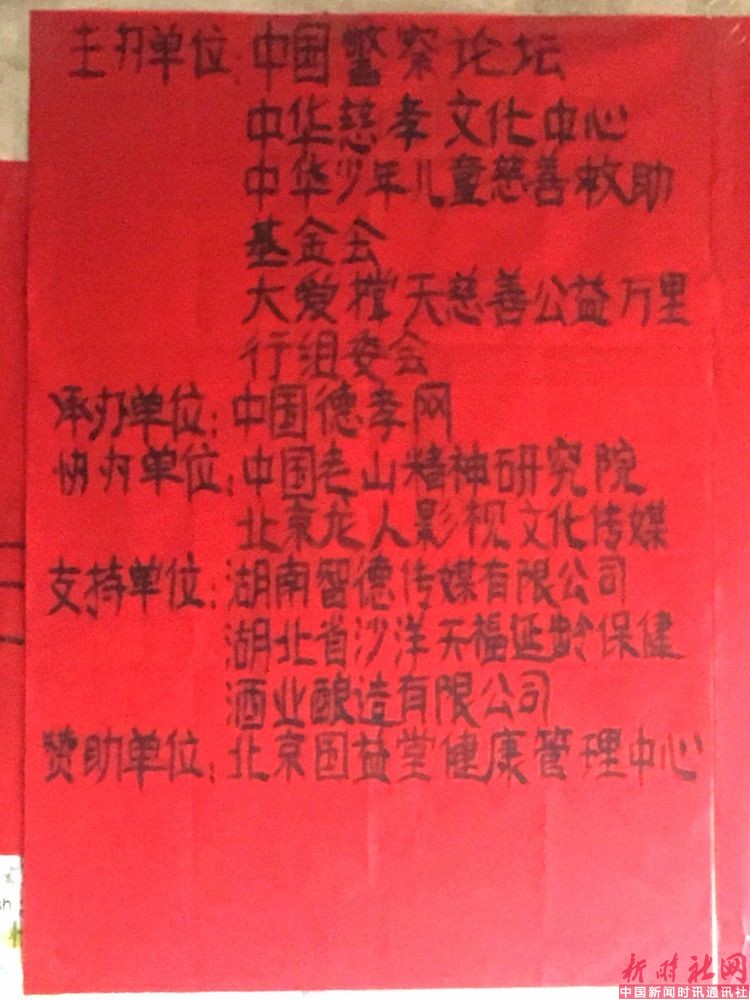 主办单位:中国警察论坛
中华慈孝文化中心
中华少年儿童慈善救助
基金会
大爱撑天慈善公益万里
行组委会
承办单位:中国德孝网
协办单位:中国老山精神研究院
北京龙人影视文化传媒
支持单位:湖南智德传媒有限公司
湖北省沙洋天福延龄保健
酒业酿造有限公司
赞助单位:北京固益堂健康管理中心
sh
新时社网
中国新闻时讯通讯社